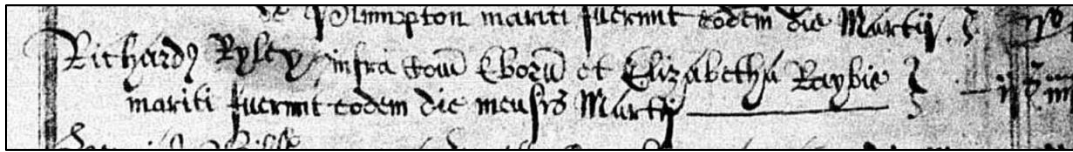 de Plumpton mariti fuerunt eodem die Martij.
Richardꝰ Ryley infra Com̄ Eborū et Elizabetha Raybie
mariti fuerunt eodem die mensis Martij